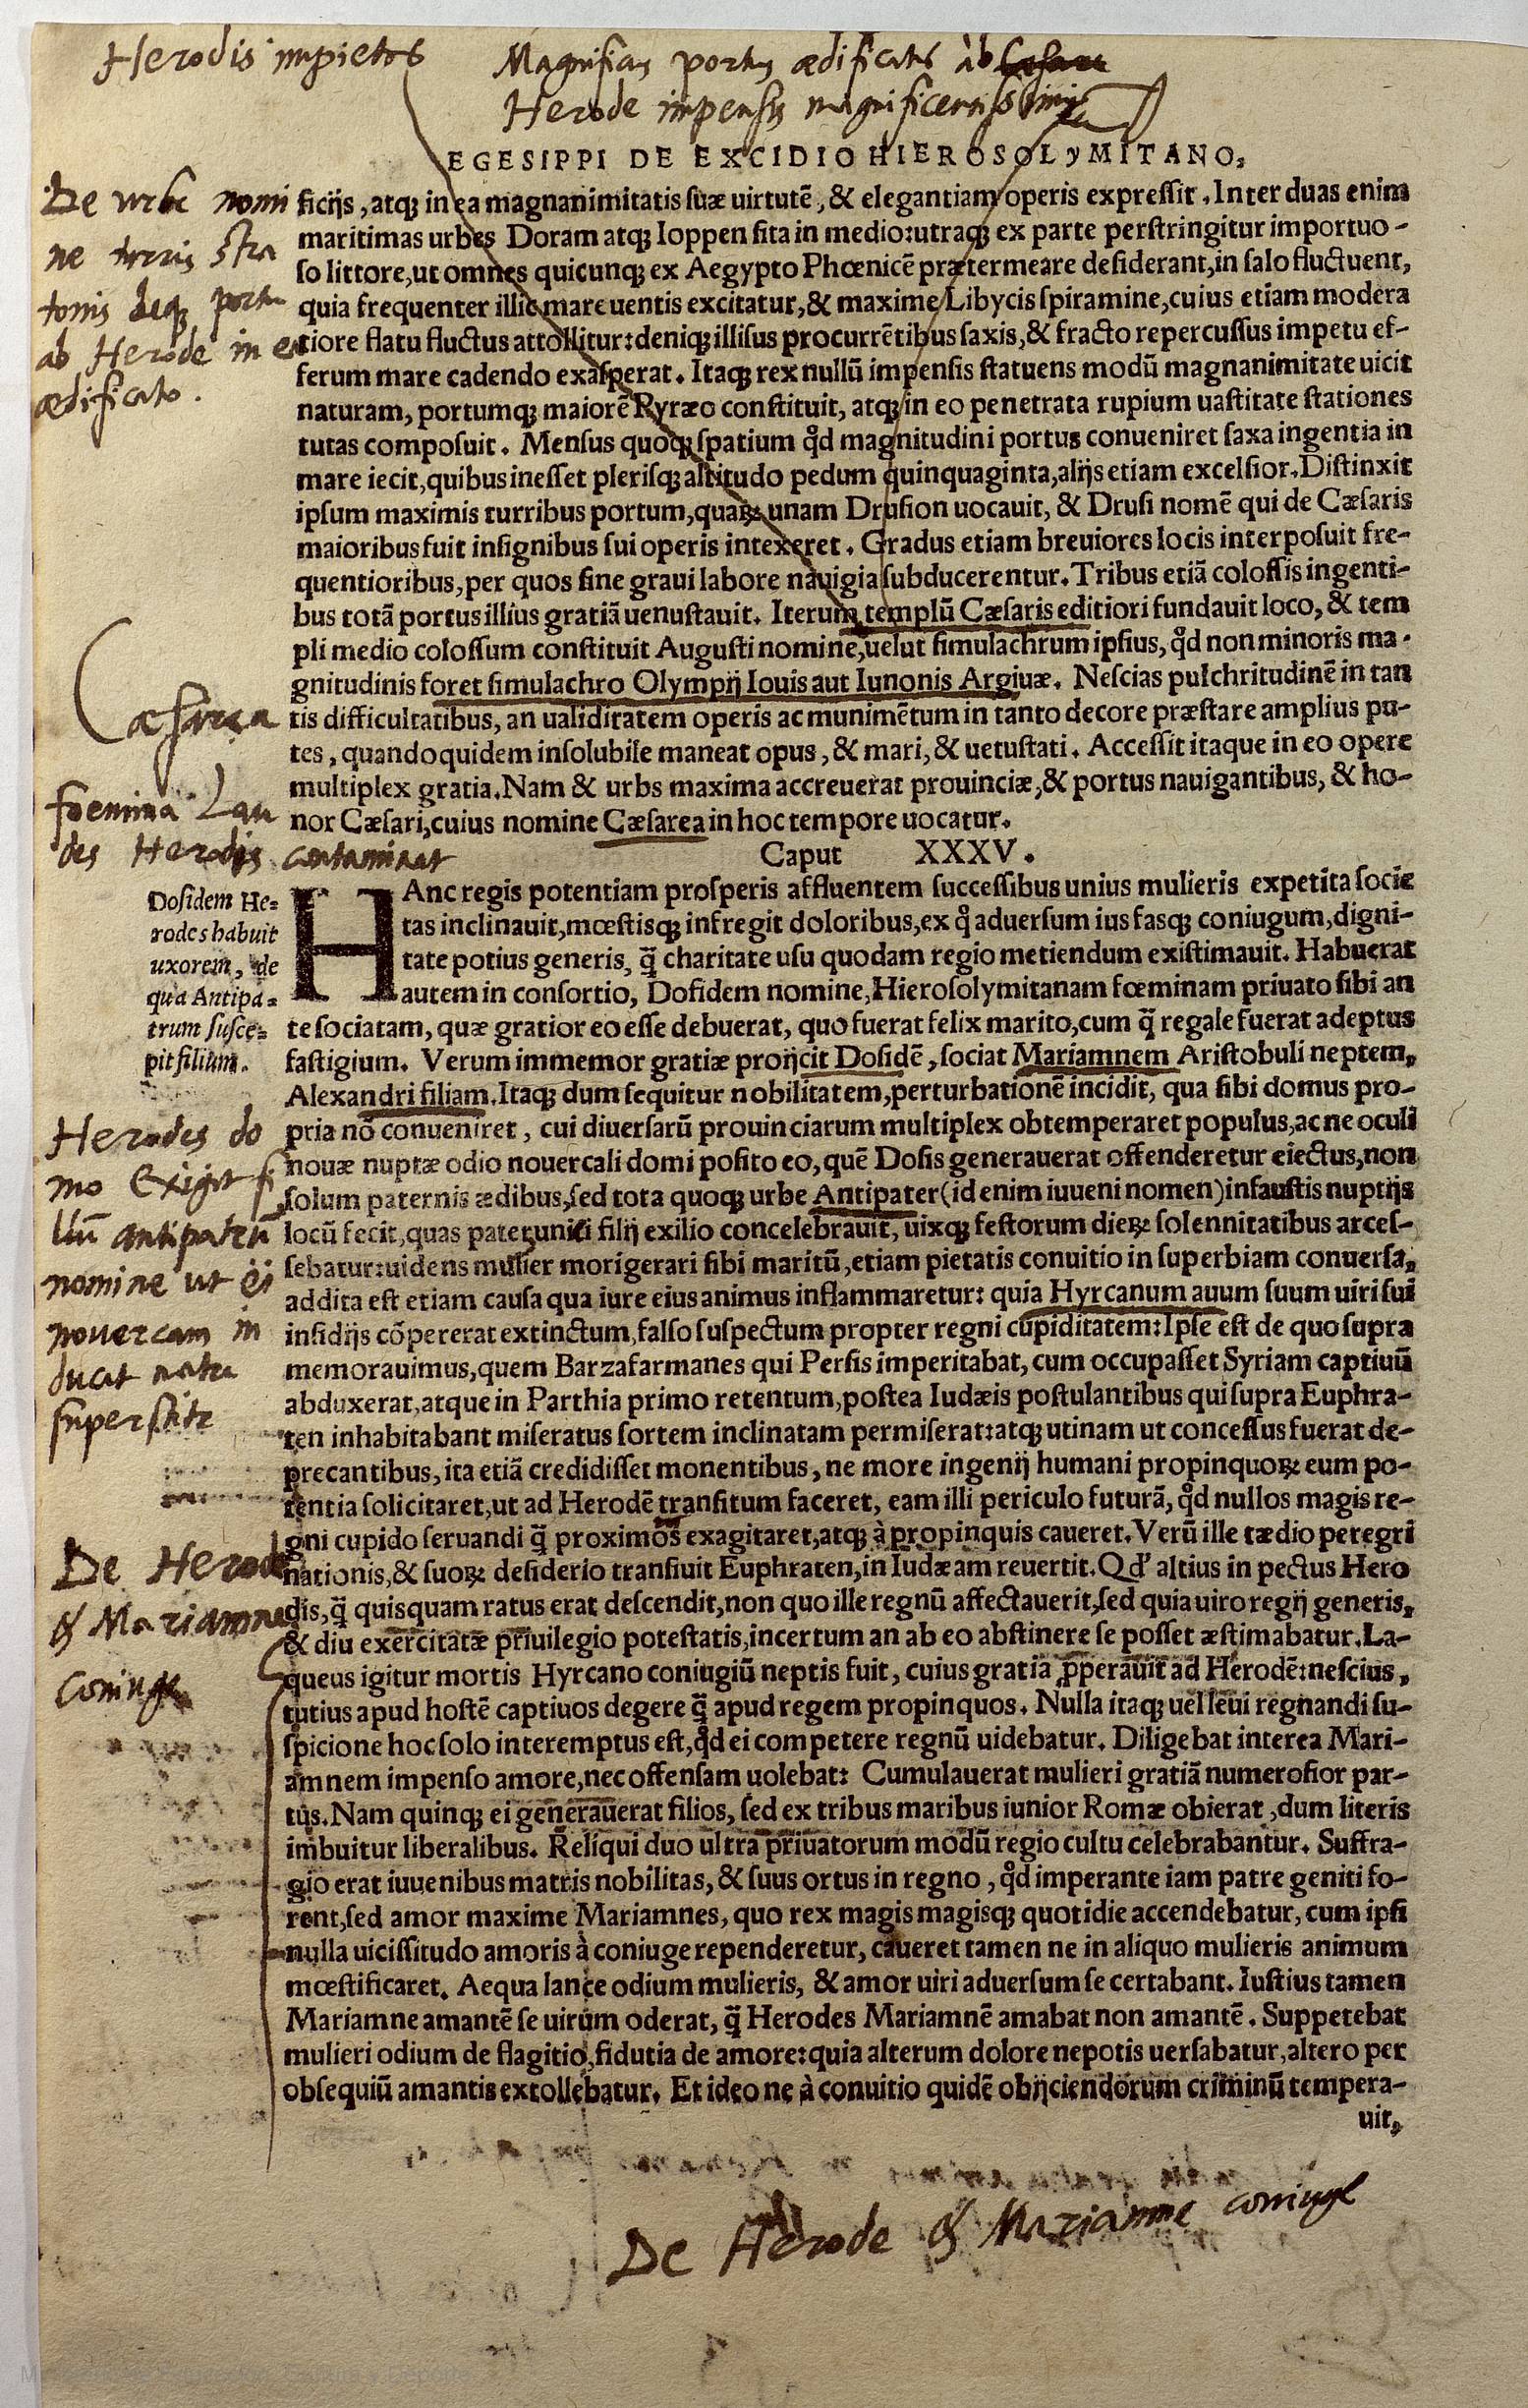 Herodis impietas
Magnificus portus ædificatus ab Cæsare
Herode impensis magnificentissimis
EGESIPPI DE EXCIDIO HIEROSOLYMITANO,
De urbe nomi
ne turris Stra
tonis deq; portu
ab Herode in ea
ædificato.
ficijs, atq; in ea magnanimitatis suæ uirtutē, & elegantiam operis expressit. Inter duas enim
maritimas urbes Doram atq; Ioppen sita in medio: utraq; ex parte perstringitur importuo-
so littore, ut omnes quicunq; ex Aegypto Phœnicē prætermeare desiderant, in salo fluctuent,
quia frequenter illic mare uentis excitatur, & maxime Libycis spiramine, cuius etiam modera
tiore flatu fluctus attollitur: deniq; illisus procurrētibus saxis, & fracto repercussus impetu ef-
ferum mare cadendo exasperat. Itaq; rex nullū impensis statuens modū magnanimitate uicit
naturam, portumq; maiorē Pyræo constituit, atq; in eo penetrata rupium uastitate stationes
tutas composuit. Mensus quoq; spatium qd̕ magnitudini portus conueniret saxa ingentia in
mare iecit, quibus inesset plerisq; altitudo pedum quinquaginta, alijs etiam excelsior. Distinxit
ipsum maximis turribus portum, quaꝝ unam Drusion uocauit, & Drusi nomē qui de Cæsaris
maioribus fuit insignibus sui operis intexeret. Gradus etiam breuiores locis interposuit fre-
quentioribus, per quos sine graui labore nauigia subducerentur. Tribus etiā colossis ingenti-
bus totā portus illius gratiā uenustauit. Iterum templū Cæsaris editiori fundauit loco, & tem
pli medio colossum constituit Augusti nomine, uelut simulachrum ipsius, qd̕ non minoris ma-
gnitudinis foret simulachro Olympij Iouis aut Iunonis Argiuæ. Nescias pulchritudinē in tan
tis difficultatibus, an ualiditatem operis ac munimētum in tanto decore præstare amplius pu-
tes, quandoquidem insolubile maneat opus, & mari, & uetustati. Accessit itaque in eo opere
multiplex gratia. Nam & urbs maxima accreuerat prouinciæ, & portus nauigantibus, & ho-
nor Cæsari, cuius nomine Cæsarea in hoc tempore uocatur.
Cæsarea
foemina Lau
des Herodis contaminat
Caput XXXV.
Dosidem He-
rodes habuit
uxorem, de
qua Antipa-
trum susce-
pit filium.
HAnc regis potentiam prosperis affluentem successibus unius mulieris expetita socie
tas inclinauit, mœstisq; infregit doloribus, ex q̊ aduersum ius fasq; coniugum, digni-
tate potius generis, q̄ charitate usu quodam regio metiendum existimauit. Habuerat
autem in consortio, Dosidem nomine, Hierosolymitanam fœminam priuato sibi an
te sociatam, quæ gratior eo esse debuerat, quo fuerat felix marito, cum q̄ regale fuerat adeptus
fastigium. Verum immemor gratiæ proijcit Dosidē, sociat Mariamnem Aristobuli neptem,
Alexandri filiam. Itaq; dum sequitur nobilitatem, perturbationē incidit, qua sibi domus pro-
pria nō conueniret, cui diuersarū prouinciarum multiplex obtemperaret populus, ac ne oculi
nouæ nuptæ odio nouercali domi posito eo, quē Dosis generauerat offenderetur eiectus, non
solum paternis ædibus, sed tota quoq; urbe Antipater (id enim iuueni nomen) infaustis nuptijs
locū fecit, quas pater unici filij exilio concelebrauit, uixq; festorum dieꝝ solennitatibus arces-
sebatur: uidens mulier morigerari sibi maritū, etiam pietatis conuitio in superbiam conuersa,
addita est etiam causa qua iure eius animus inflammaretur: quia Hyrcanum auum suum uiri sui
insidijs cōpererat extinctum, falso suspectum propter regni cupiditatem: Ipse est de quo supra
memorauimus, quem Barzafarmanes qui Persis imperitabat, cum occupasset Syriam captiuū
abduxerat, atque in Parthia primo retentum, postea Iudæis postulantibus qui supra Euphra-
ten inhabitabant miseratus sortem inclinatam permiserat: atq; utinam ut concessus fuerat de-
precantibus, ita etiā credidisset monentibus, ne more ingenij humani propinquoꝝ eum po-
tentia solicitaret, ut ad Herodē transitum faceret, eam illi periculo futurā, qd̕ nullos magis re-
gni cupido seruandi q̄ proximos exagitaret, atq; à propinquis caueret. Verū ille tædio peregri
nationis, & suoꝝ desiderio transiuit Euphraten, in Iudæam reuertit. Qd̕ altius in pectus Hero
dis, q̄ quisquam ratus erat descendit, non quo ille regnū affectauerit, sed quia uiro regij generis,
& diu exercitatæ priuilegio potestatis, incertum an ab eo abstinere se posset æstimabatur. La-
queus igitur mortis Hyrcano coniugiū neptis fuit, cuius gratia ꝓperauit ad Herodē: nescius,
tutius apud hostē captiuos degere q̄ apud regem propinquos. Nulla itaq; uel leui regnandi su-
spicione hoc solo interemptus est, qd̕ ei competere regnū uidebatur. Diligebat interea Mari-
amnem impenso amore, nec offensam uolebat: Cumulauerat mulieri gratiā numerosior par-
tus. Nam quinq; ei generauerat filios, sed ex tribus maribus iunior Romæ obierat, dum literis
imbuitur liberalibus. Reliqui duo ultra priuatorum modū regio cultu celebrabantur. Suffra-
gio erat iuuenibus matris nobilitas, & suus ortus in regno, qd̕ imperante iam patre geniti fo-
rent, sed amor maxime Mariamnes, quo rex magis magisq; quotidie accendebatur, cum ipsi
nulla uicissitudo amoris à coniuge rependeretur, caueret tamen ne in aliquo mulieris animum
mœstificaret. Aequa lance odium mulieris, & amor uiri aduersum se certabant. Iustius tamen
Mariamne amantē se uirum oderat, q̄ Herodes Mariamnē amabat non amantē. Suppetebat
mulieri odium de flagitio, fidutia de amore: quia alterum dolore nepotis uersabatur, altero per
obsequiū amantis extollebatur. Et ideo ne à conuitio quidē obijciendorum criminū tempera-
uit,
Herodes do
mo exigit fi
liū antipatrū
nomine ut ei
nouercam in
ducat matre
superstite
De Herode
& Mariamne
coniuge
De Herode & Mariamne coniuge